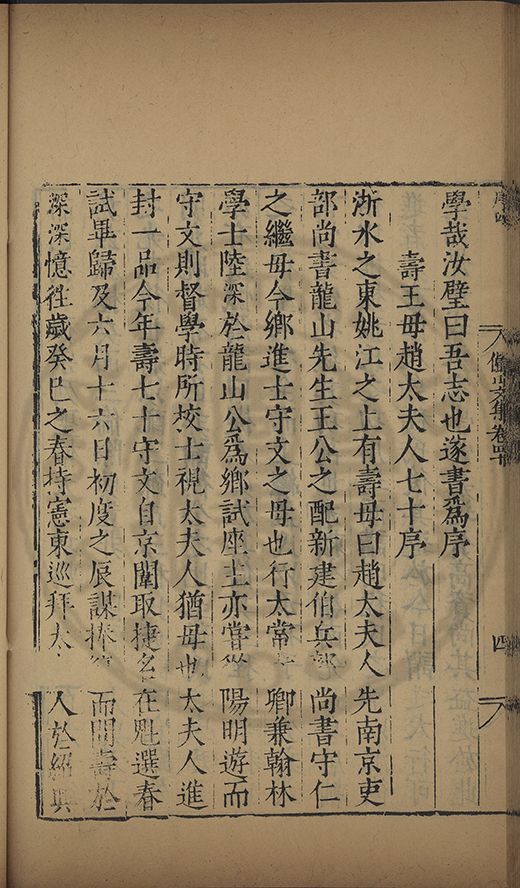 學哉汝璧曰吾志也遂書爲序
壽王母趙太夫人七十序
浙水之東姚江之上有壽母曰趙太夫人先南京吏
部尚書龍山先生王公之配新建伯兵部尚書守仁
之繼母今鄉進士守文之母也行太常卿兼翰林
學士陸深於龍山公爲鄉試座主亦嘗從陽明遊而
守文則督學時所校士視太夫人猶母也太夫人進
封一品今年壽七十守文自京闈取捷名在魁選春
試畢歸及六月十六日初度之辰謀捧而閉壽於
深深憶往歲癸巳之春持憲東巡拜太人於紹興
儼山文集卷四十
四